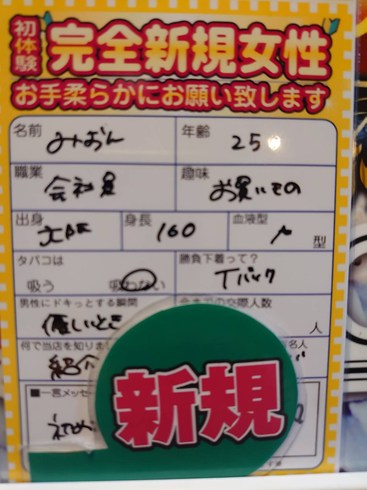 初体験
完全新規女性
お手柔らかにお願い致します
名前 みおん 年齢 25
職業 会社員 趣味 お買いもの
出身 大阪 身長 160 血液型 A 型
タバコは 勝負下着って?
吸う 吸わない Tバック
男性にドキっとする瞬間
優しいとき 人
何で当店を知りまし
紹介
■一言メッセー
初め
新規